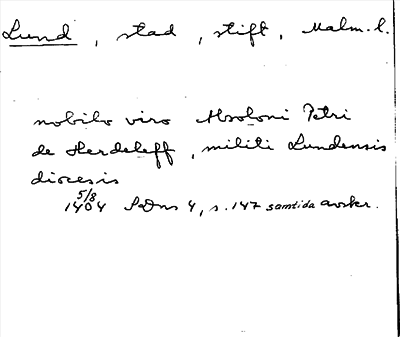 Lund, stad, stift, Malm. l.
nobili viro Absoloni Petri
de Herdeleff, militi Lundensis
diocesis
5/8
1404 SDns 4, s. 147 samtida avskr.